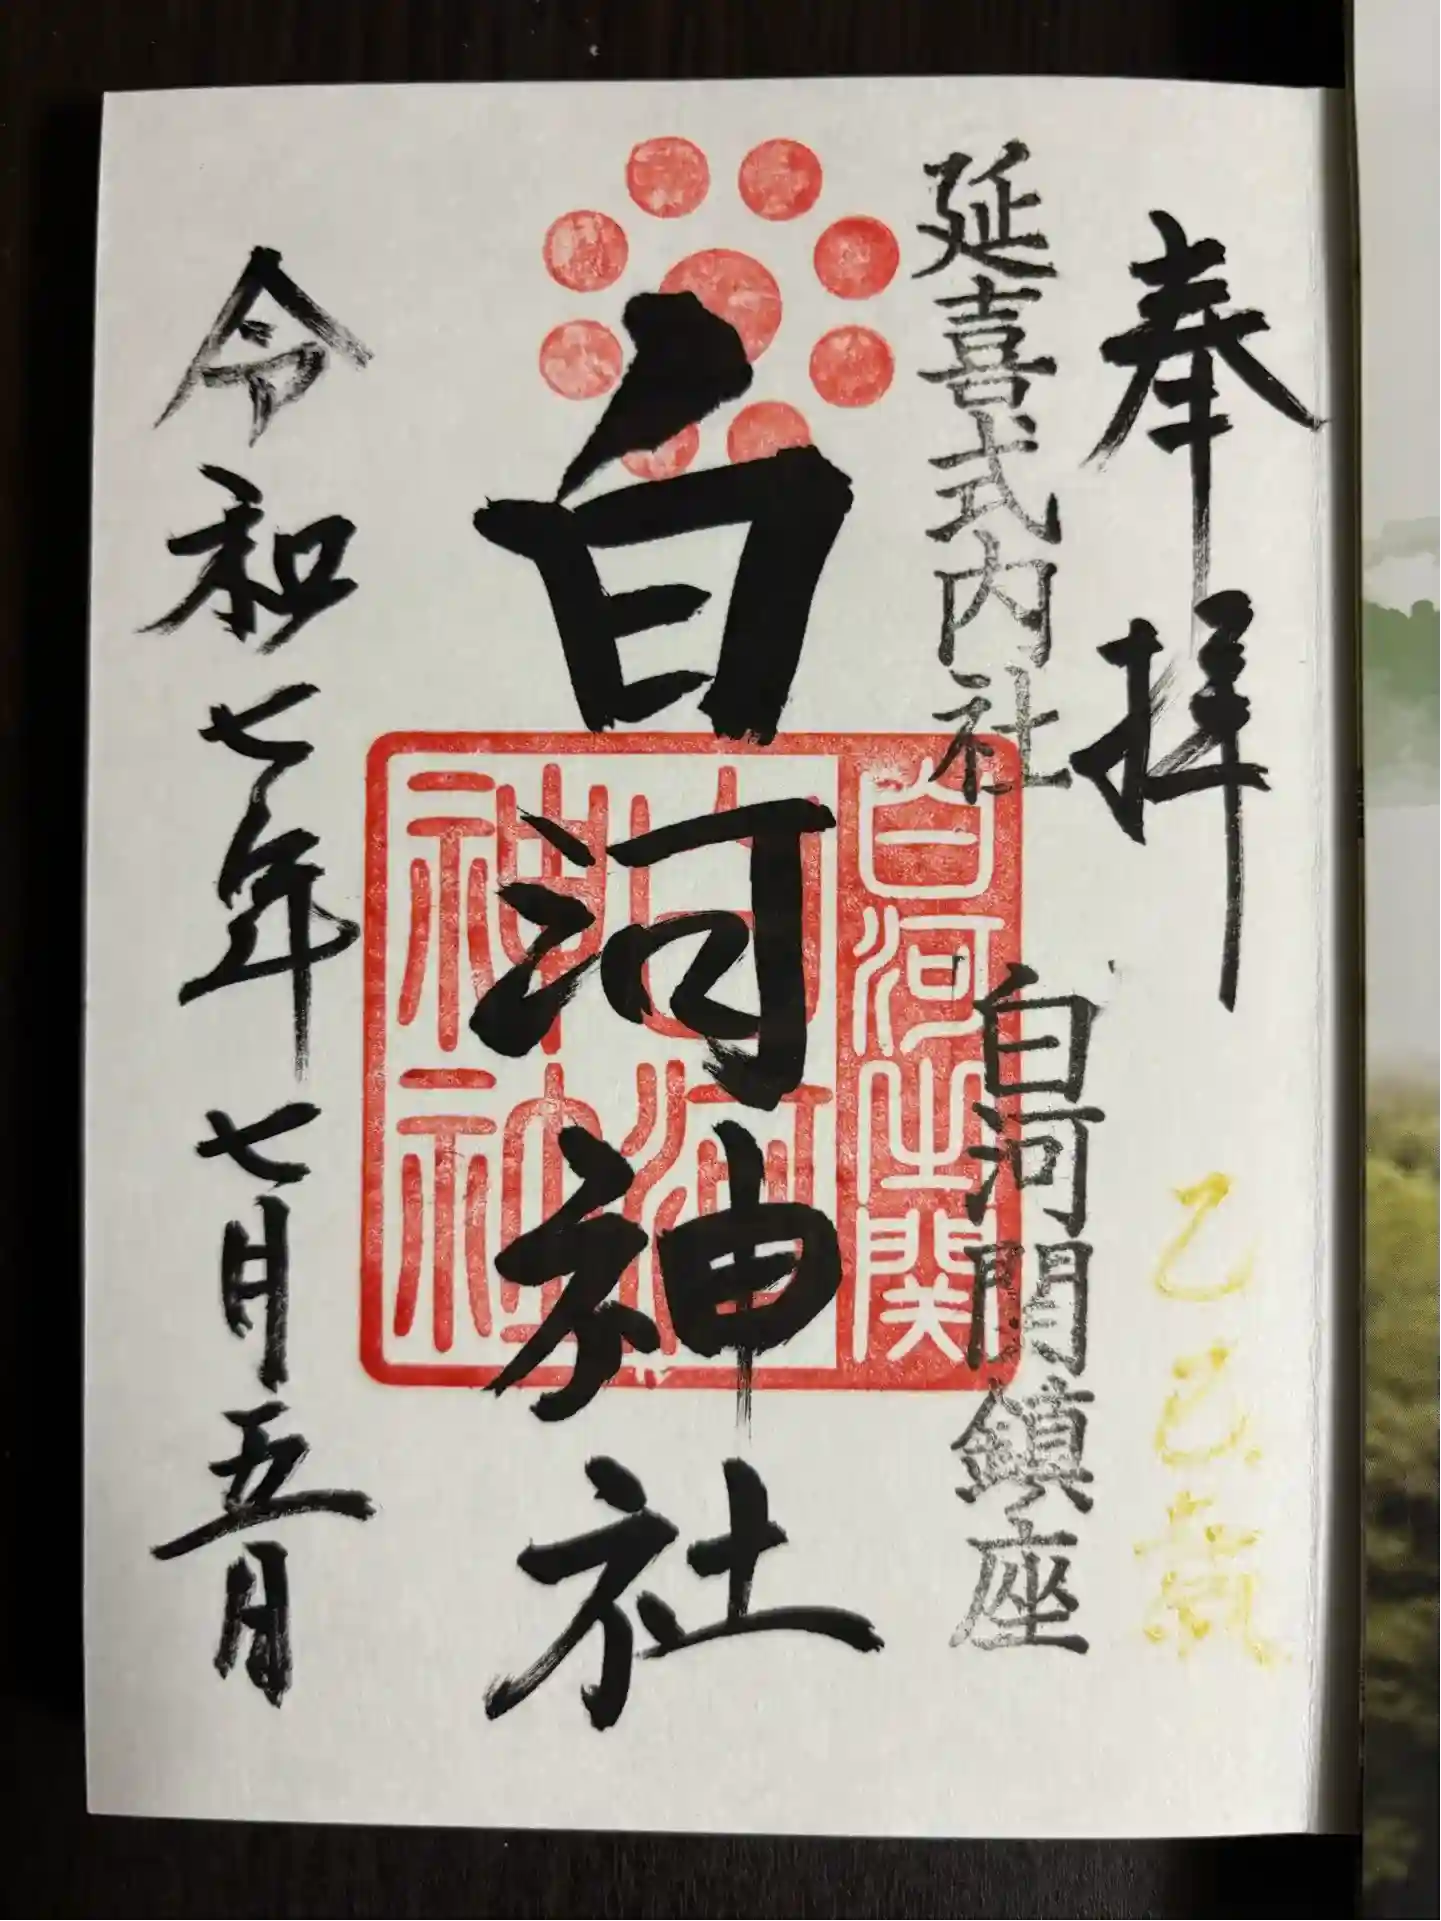 奉拝
乙巳
延喜式内社
白河関鎮座
白河神社
白河之関
白河
神社
令和七年七月五日